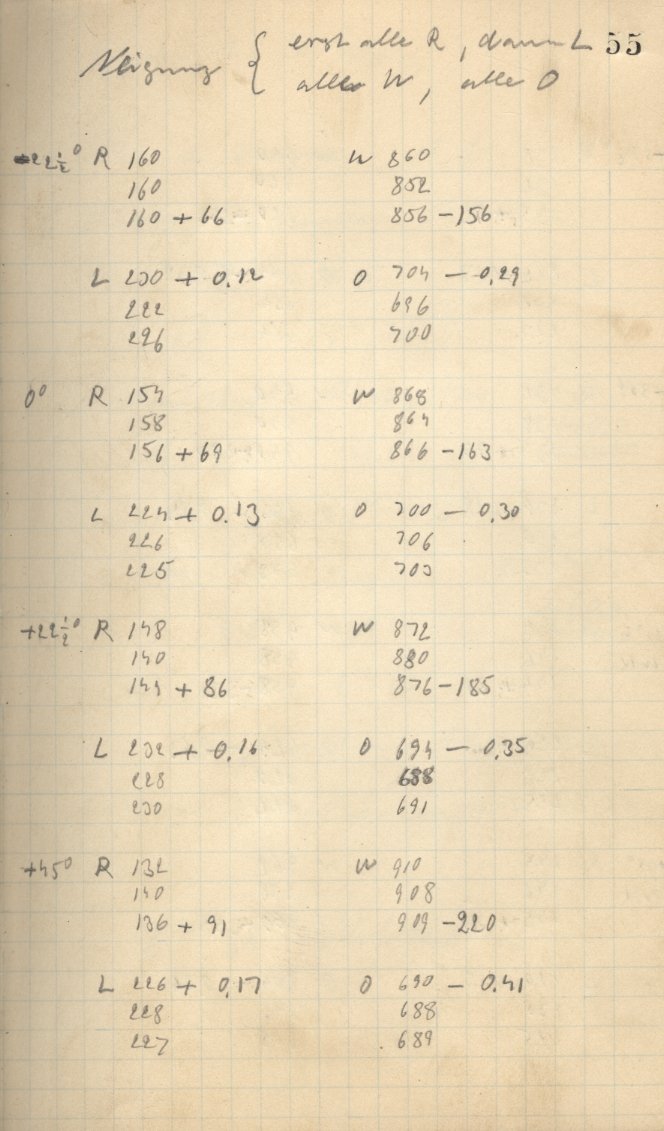 erst alle R, dann L 55
Neigung {
alle W, alle O
-22½° R 160 W 860
160 852
160 + 66 856 - 156
L 230 + 0.12 O 704 - 0.29
222 696
226 700
0° R 154 W 868
158 864
156 + 69 866 - 163
L 224 + 0.13 O 700 - 0.30
226 706
225 703
+22½° R 148 W 872
140 880
144 + 86 876 - 185
L 232 + 0.16 O 694 - 0.35
228 688
230 691
+45° R 132 W 910
140 908
136 + 91 909 - 220
L 226 + 0.17 O 690 - 0.41
228 688
227 689